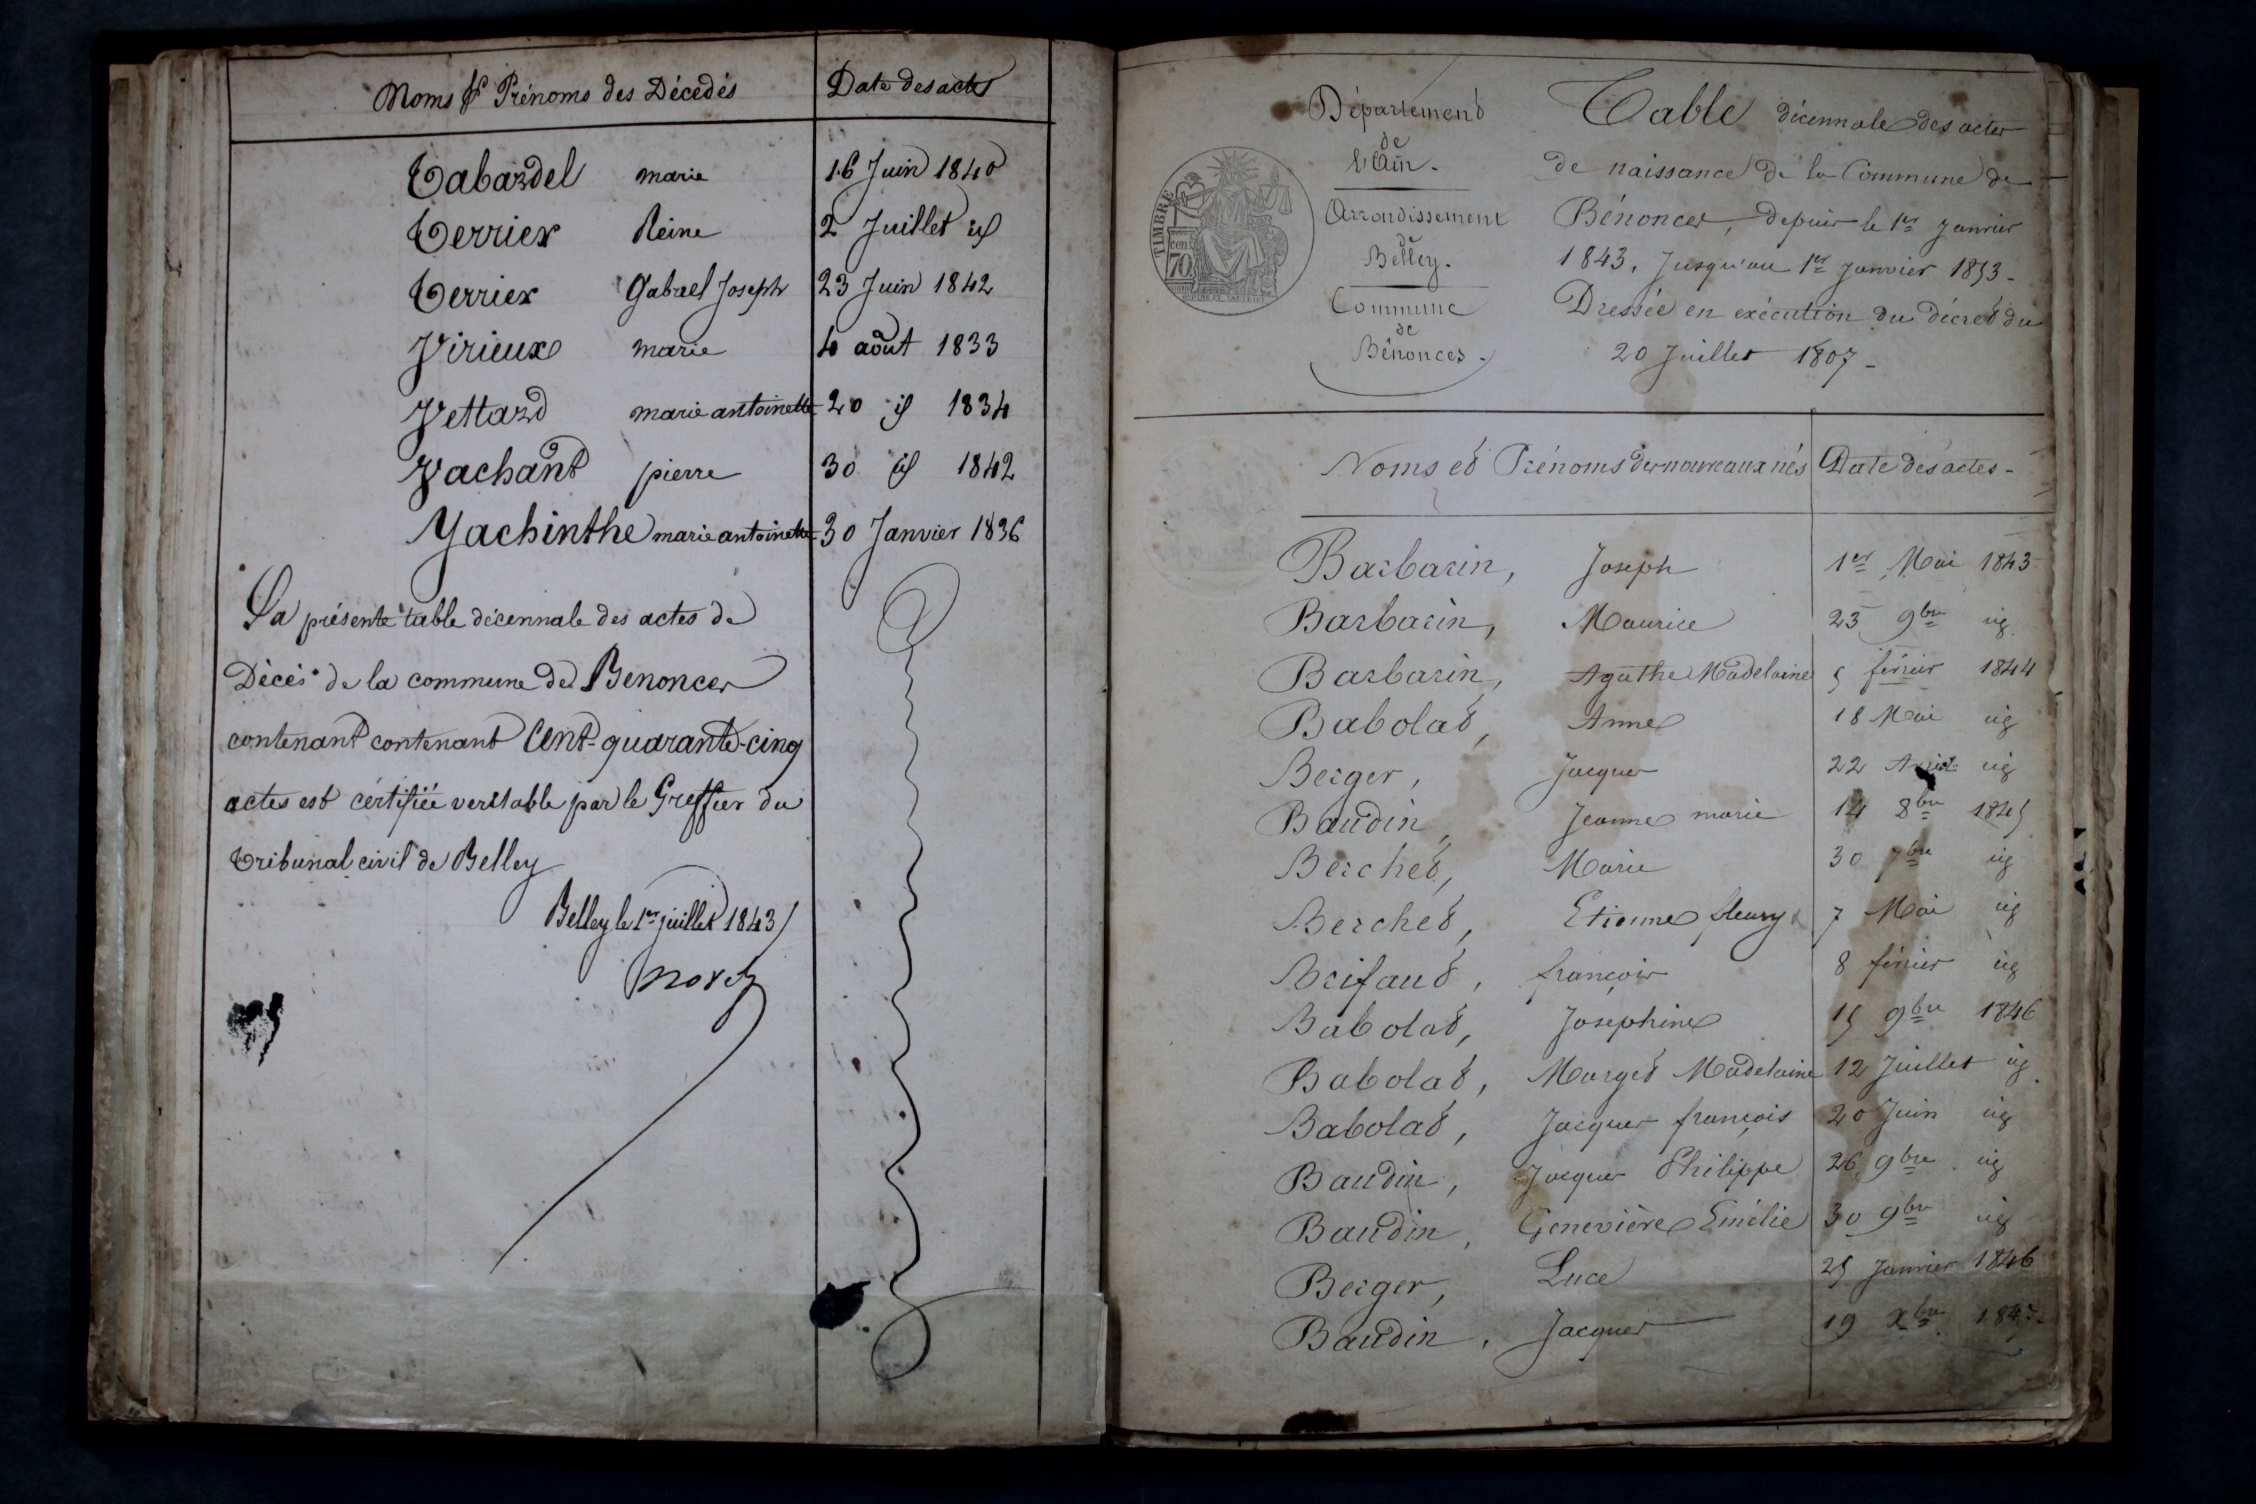 Noms & Prénoms des Décédés Date des actes
Tabardel marie 16 Juin 1840
Terrier Reine 2 Juillet id
Terrier Gabriel Joseph 23 Juin 1842
Virieux marie 4 août 1833
Vettard marie antoinette 20 id 1834
Vachant pierre 30 id 1842
Yachinthe marie antoinette 30 Janvier 1836
La présente table décennale des actes de
Décès de la commune de Benonces
contenant contenant Cent-quarante-cinq
actes est certifiée veritable par le Greffier du
tribunal civil de Belley
Belley le 1er juillet 1843
Département
de
l'Ain.
Arrondissement
de
Belley.
Commune
de
Bénonces.
TIMBRE
cen
70
Table décennale des actes
de naissance de la Commune de
Bénonces, depuis le 1er Janvier
1843, Jusqu'au 1er Janvier 1853.
Dressée en exécution du décret du
20 Juillet 1807.
Noms et Prénoms des nouveaux nés Date des actes.
Barbarin, Joseph 1er Mai 1843
Barbarin, Maurice 23 9bre id
Barbarin, Agathe Madelaine 5 février 1844
Babolat, Anne 18 Mai id
Berger, Jacques 22 Avril id
Baudin, Jeanne marie 14 8bre 1845
Berchet, Marie 30 7bre id
Berchet, Etienne fleury 7 Mai id
Brifaud, françois 8 février id
Babolat, Joséphine 15 9bre 1846
Babolat, Marget Madelaine 12 Juillet id
Babolat, Jacques françois 20 Juin id
Baudin, Jacques Philippe 26 9bre id
Baudin, Geneviève Emélie 30 9bre id
Berger, Luce 25 Janvier 1846
Baudin, Jacques 19 Xbre 1847